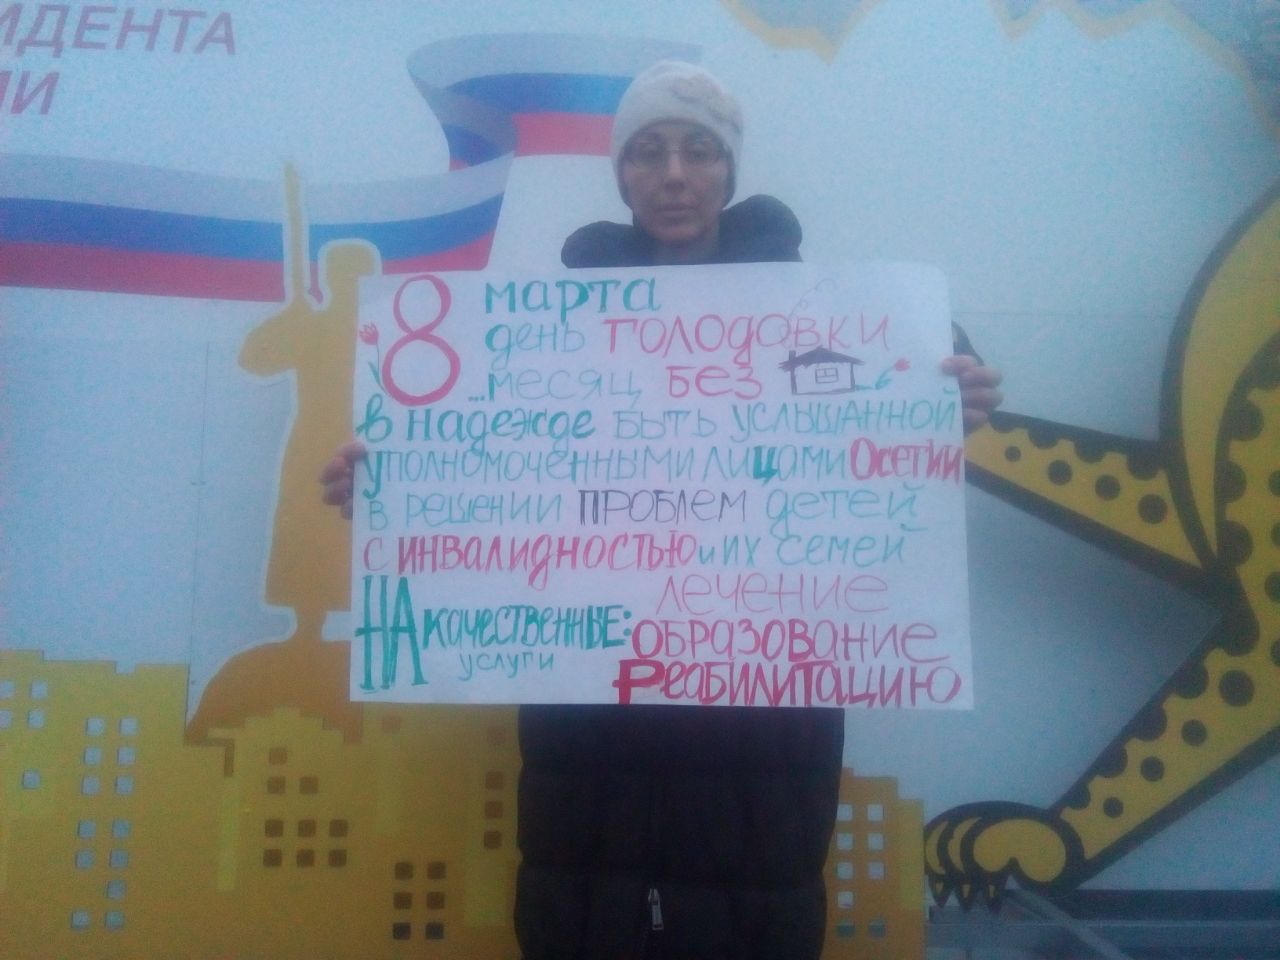 ИДЕНТА
ИИ
8 марта
день голодовки
...месяц без
в надежде быть услышанной
уполномоченными лицами Осетии
в решении проблем детей
с инвалидностью и их семей
НА качественные:
услуги
лечение
образование
Реабилитацию